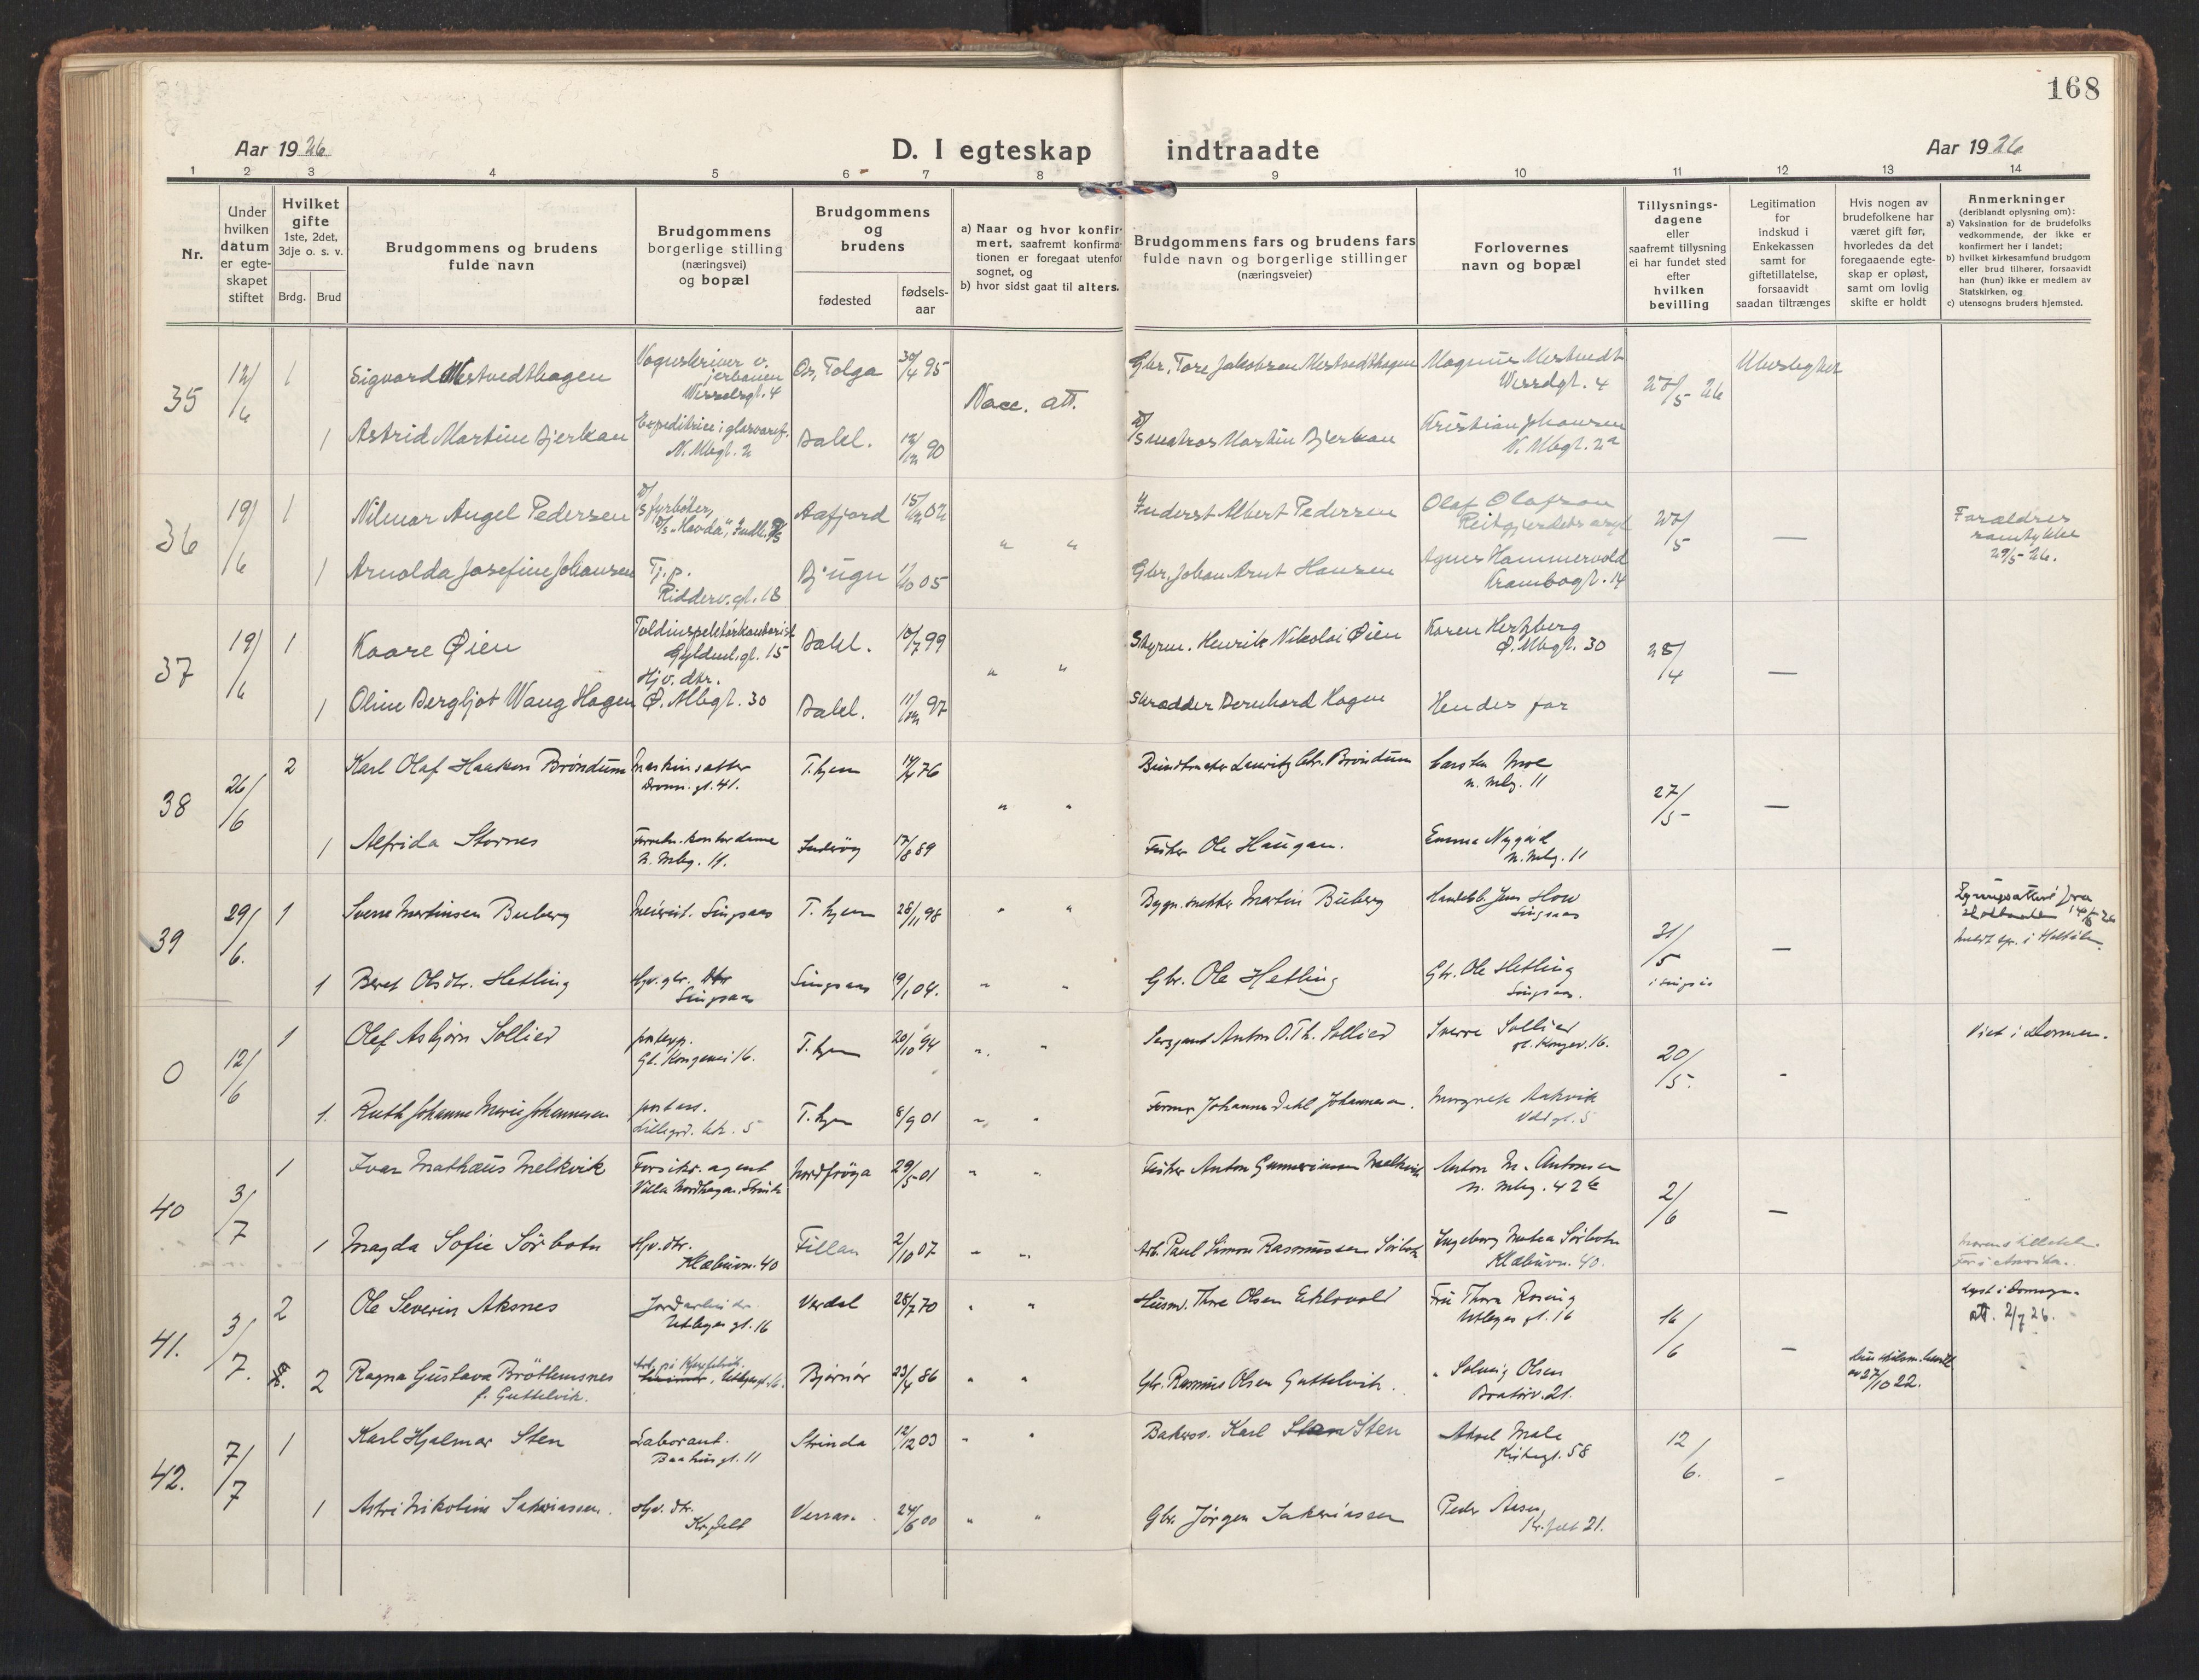 168
Aar 1926
D. I egteskap indtraadte
Aar 1926
1 2 3 4 5 6 7 8 9 10 11 12 13 14
Nr.
Under
hvilken
datum
er egte-
skapet
stiftet
Hvilket
gifte
1ste, 2det,
3dje o. s. v.
Brdg. Brud
Brudgommens og brudens
fulde navn
Brudgommens
borgerlige stilling
(næringsvei)
og bopæl
Brudgommens
og
brudens
fødested
fødsels-
aar
a) Naar og hvor konfir-
mert, saafremt konfirma-
tionen er foregaat utenfor
sognet, og
b) hvor sidst gaat til alters.
Brudgommens fars og brudens fars
fulde navn og borgerlige stillinger
(næringsveier)
Forlovernes
navn og bopæl
Tillysnings-
dagene
eller
saafremt tillysning
ei har fundet sted
efter
hvilken
bevilling
Legitimation
for
indskud i
Enkekassen
samt for
giftetillatelse,
forsaavidt
saadan tiltrænges
Hvis nogen av
brudefolkene har
været gift før,
hvorledes da det
foregaaende egte-
skap er opløst,
samt om lovlig
skifte er holdt
Anmerkninger
(deriblandt oplysning om):
a) Vaksination for de brudefolks
vedkommende, der ikke er
konfirmert her i landet;
b) hvilket kirkesamfund brudgom
eller brud tilhører, forsaavidt
han (hun) ikke er medlem av
Statskirken, og
c) utensogns bruders hjemsted.
35 12/6 1 Sigvard Mestvedthagen
Os, Tolga 30/4 95 Vacc. att. Gbr. Tore Jakobsen Mestvedthagen Magnus Mestvedt
27/5 26
1 Astrid Martine Bjerkan
N. Mbgt. 2
Bakl. 12/12 90 D/S matros Martin Bjerkan Kristian Johansen
N. Mbgt. 2a
36 19/6 1 Hilmar Angel Pedersen D/S fyrbøter,
Aafjord 15/12 02 " " Inderst Albert Pedersen Olaf Olafson
27/5 — Forældres
samtykke
29/5 26.
1 Arnolda Josefine Johansen Tj.p.
Ridderv.gt. 18
Bjugn 05 Gbr. Johan Arnt Hansen Agnes Hammervold
Krambogt. 14
37 19/6 1 Kaare Øien Toldinspektørkontorist
Gyldenl.gt. 15
Bakl. 10/7 99 " " Styrm. Henrik Nikolai Øien Karen Hertzberg
Ø. Mbgt. 30
28/4 —
1 Oline Bergljot Wang Hagen Hjv. dtr.
Ø. Mbgt. 30
Bakl. 11/12 97 Skrædder Bernhard Hagen Hendes far
38 26/6 2 Karl Olaf Haakon Brøndum Maskinsætter
Dronn. gt. 41.
T.hjem 76 " " Buntmaker Lauritz Chr. Brøndum Carsten Moe
N. Mbg. 11
27/5 —
1 Alfrida Stornes
N. Mbg. 11.
Inderøy 17/8 89 Fisker Ole Haugan. Emma Nygård
N. Mbg. 11
39 29/6. 1 Sverre Martinsen Buberg Meierist. Singsaas T. hjem 28/1 98 " " Bygn.snekker Martin Buberg
Singsaas
31/5
i Singsås
—
1 Beret Olsdtr. Hetling
Singsaas
Singsaas 19/1 04. " " Gbr. Ole Hetling Gbr. Ole Hetling
Singsaas.
0 12/6 1 Olaf Asbjørn Sollied postexp.
Gl. Kongevei 16.
T. hjem 20/10 94 " " Sersjant Anton O.Th. Sollied Sverre Sollied
Gl. Kongev. 16.
20/5. - Viet i Domen.
1. Ruth Johanne Marie Johannesen post ass.
T. hjem 8/9 01 " " Former Johannes Dahl Johannesen. Margrete Aakvik
40 3/7 1 Ivar Mathæus Melkvik Forsikr. agent
Villa Nordhagen, Strinda
Nordfrøya 29/5 01 " " Fisker Anton Gunnerius Melkvik Anton M. Antonsen
N. Mbg. 42
2/6 —
1 Magda Sofie Sørbotn Hjv. dtr.
Klæbuvn. 40
Fillan 2/10 07 " " Arb. Paul Simon Rasmussen Sørbotn Ingeborg Matea Sørbotn
Klæbuvn. 40.
Far i Amerika.
41. 3/7. 2 Ole Severin Aksnes Jordarbeider.
Utleger gt. 16
Verdal 28/7 70 " " Husm. Thore Olsen Eklovald Fru Thora Rosing
Utleger gt. 16
16/6 — Lyst i Domsogn.
att. 2/7 26.
2 Ragna Gustava Brøttemsnes
f. Guttelvik.
Bjørnør 23/4 86 " " Gbr. Rasmus Olsen Guttelvik. " Solveig Olsen
Bratørv. 21.
av 27/10 22.
42. 7/7 1 Karl Hjalmar Sten Laborant.
Baahus gt. 11
Strinda 12/12 03 " " Bakerss. Karl Sten Aksel Male
Kirkegt. 58
12/6. -
1 Astri Nikoline Sakariassen. Hjv. dtr.
Verran. 24/6 00 " " Gbr. Jørgen Sakariassen Peder Aasen
21.